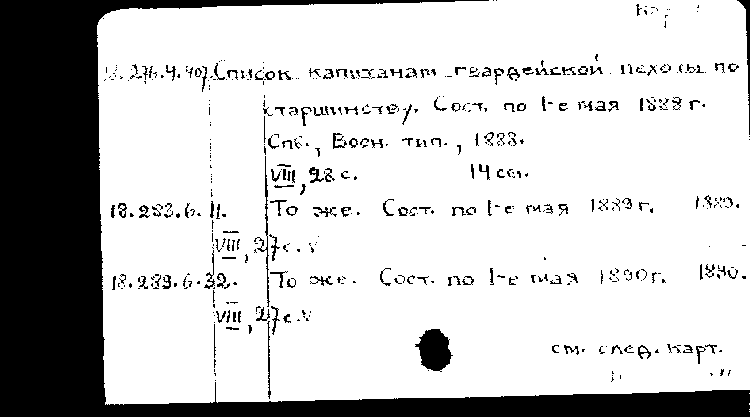 18.276.4.407. Список капитанам гвардейской пехоты по
старшинству. Сост. по 1-е мая 1888 г.
Спб., Воен. тип., 1888.
VIII, 28 с. 14 см.
18.283.6.11. То же. Сост. по 1-е мая 1889 г. 1889.
VIII, 27 с. V
18.289.6.32. То же. Сост. по 1-е мая 1890 г. 1890.
VIII, 27 с. V
см. след. карт.